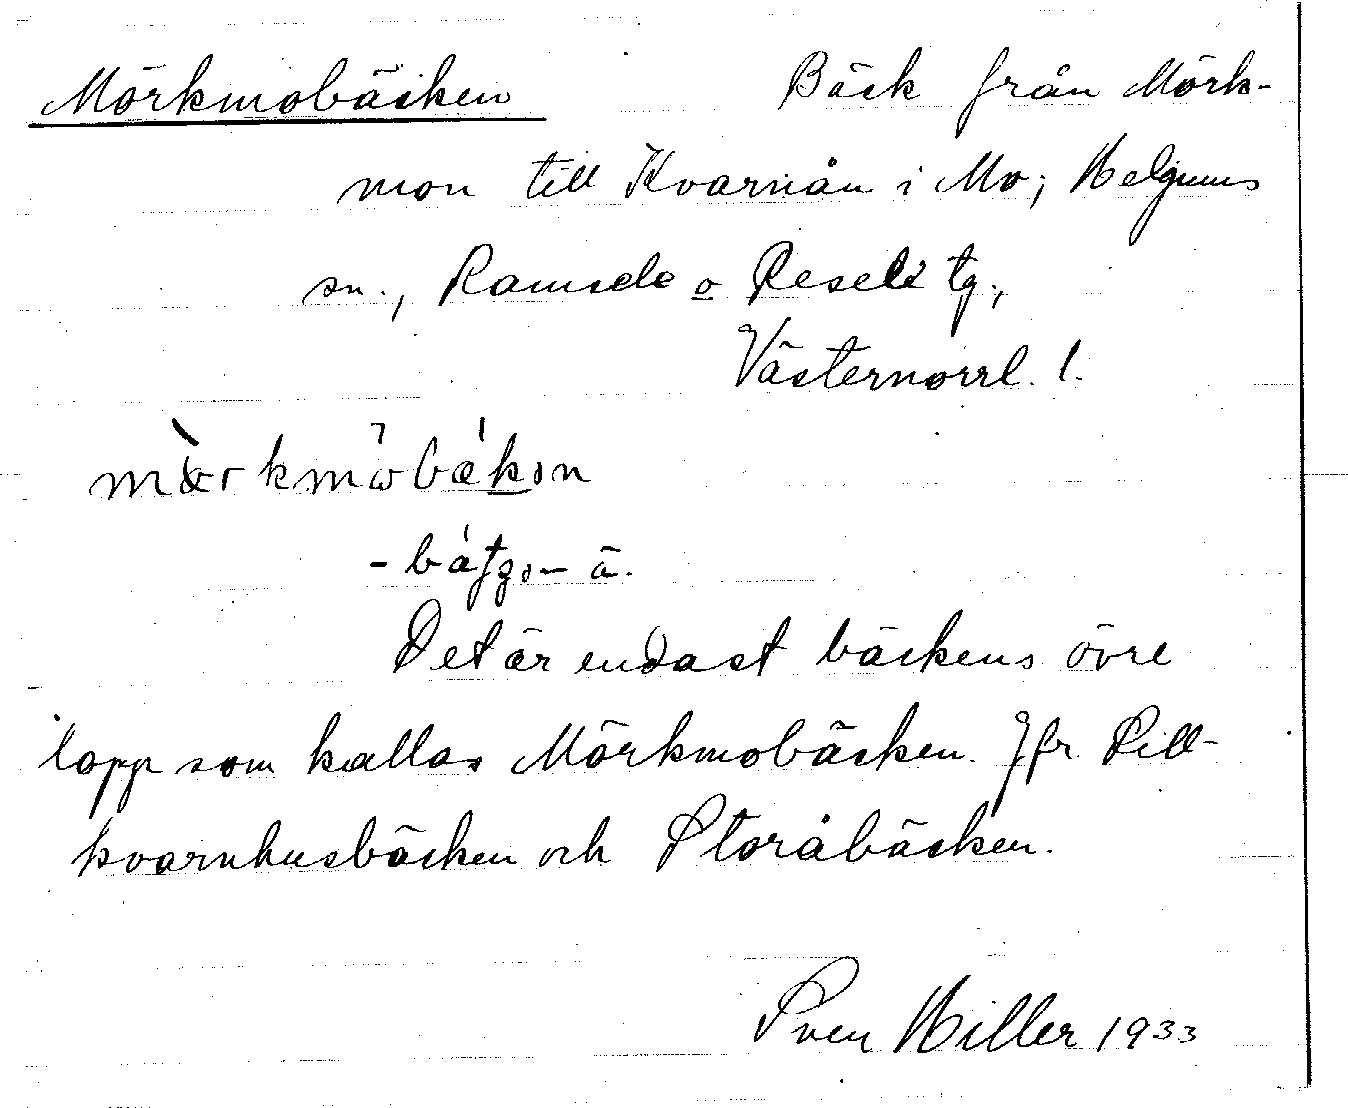 Mörkmobäcken Bäck från Mörk-
mon till Kvarnån i Mo; Helgums
sn., Ramsele o Resele tg.,
Västernorrl. l.
Det är endast bäckens övre
lopp som kallas Mörkmobäcken. Jfr Lill-
kvarnhusbäcken och Storåbäcken.
Sven Hiller 1933